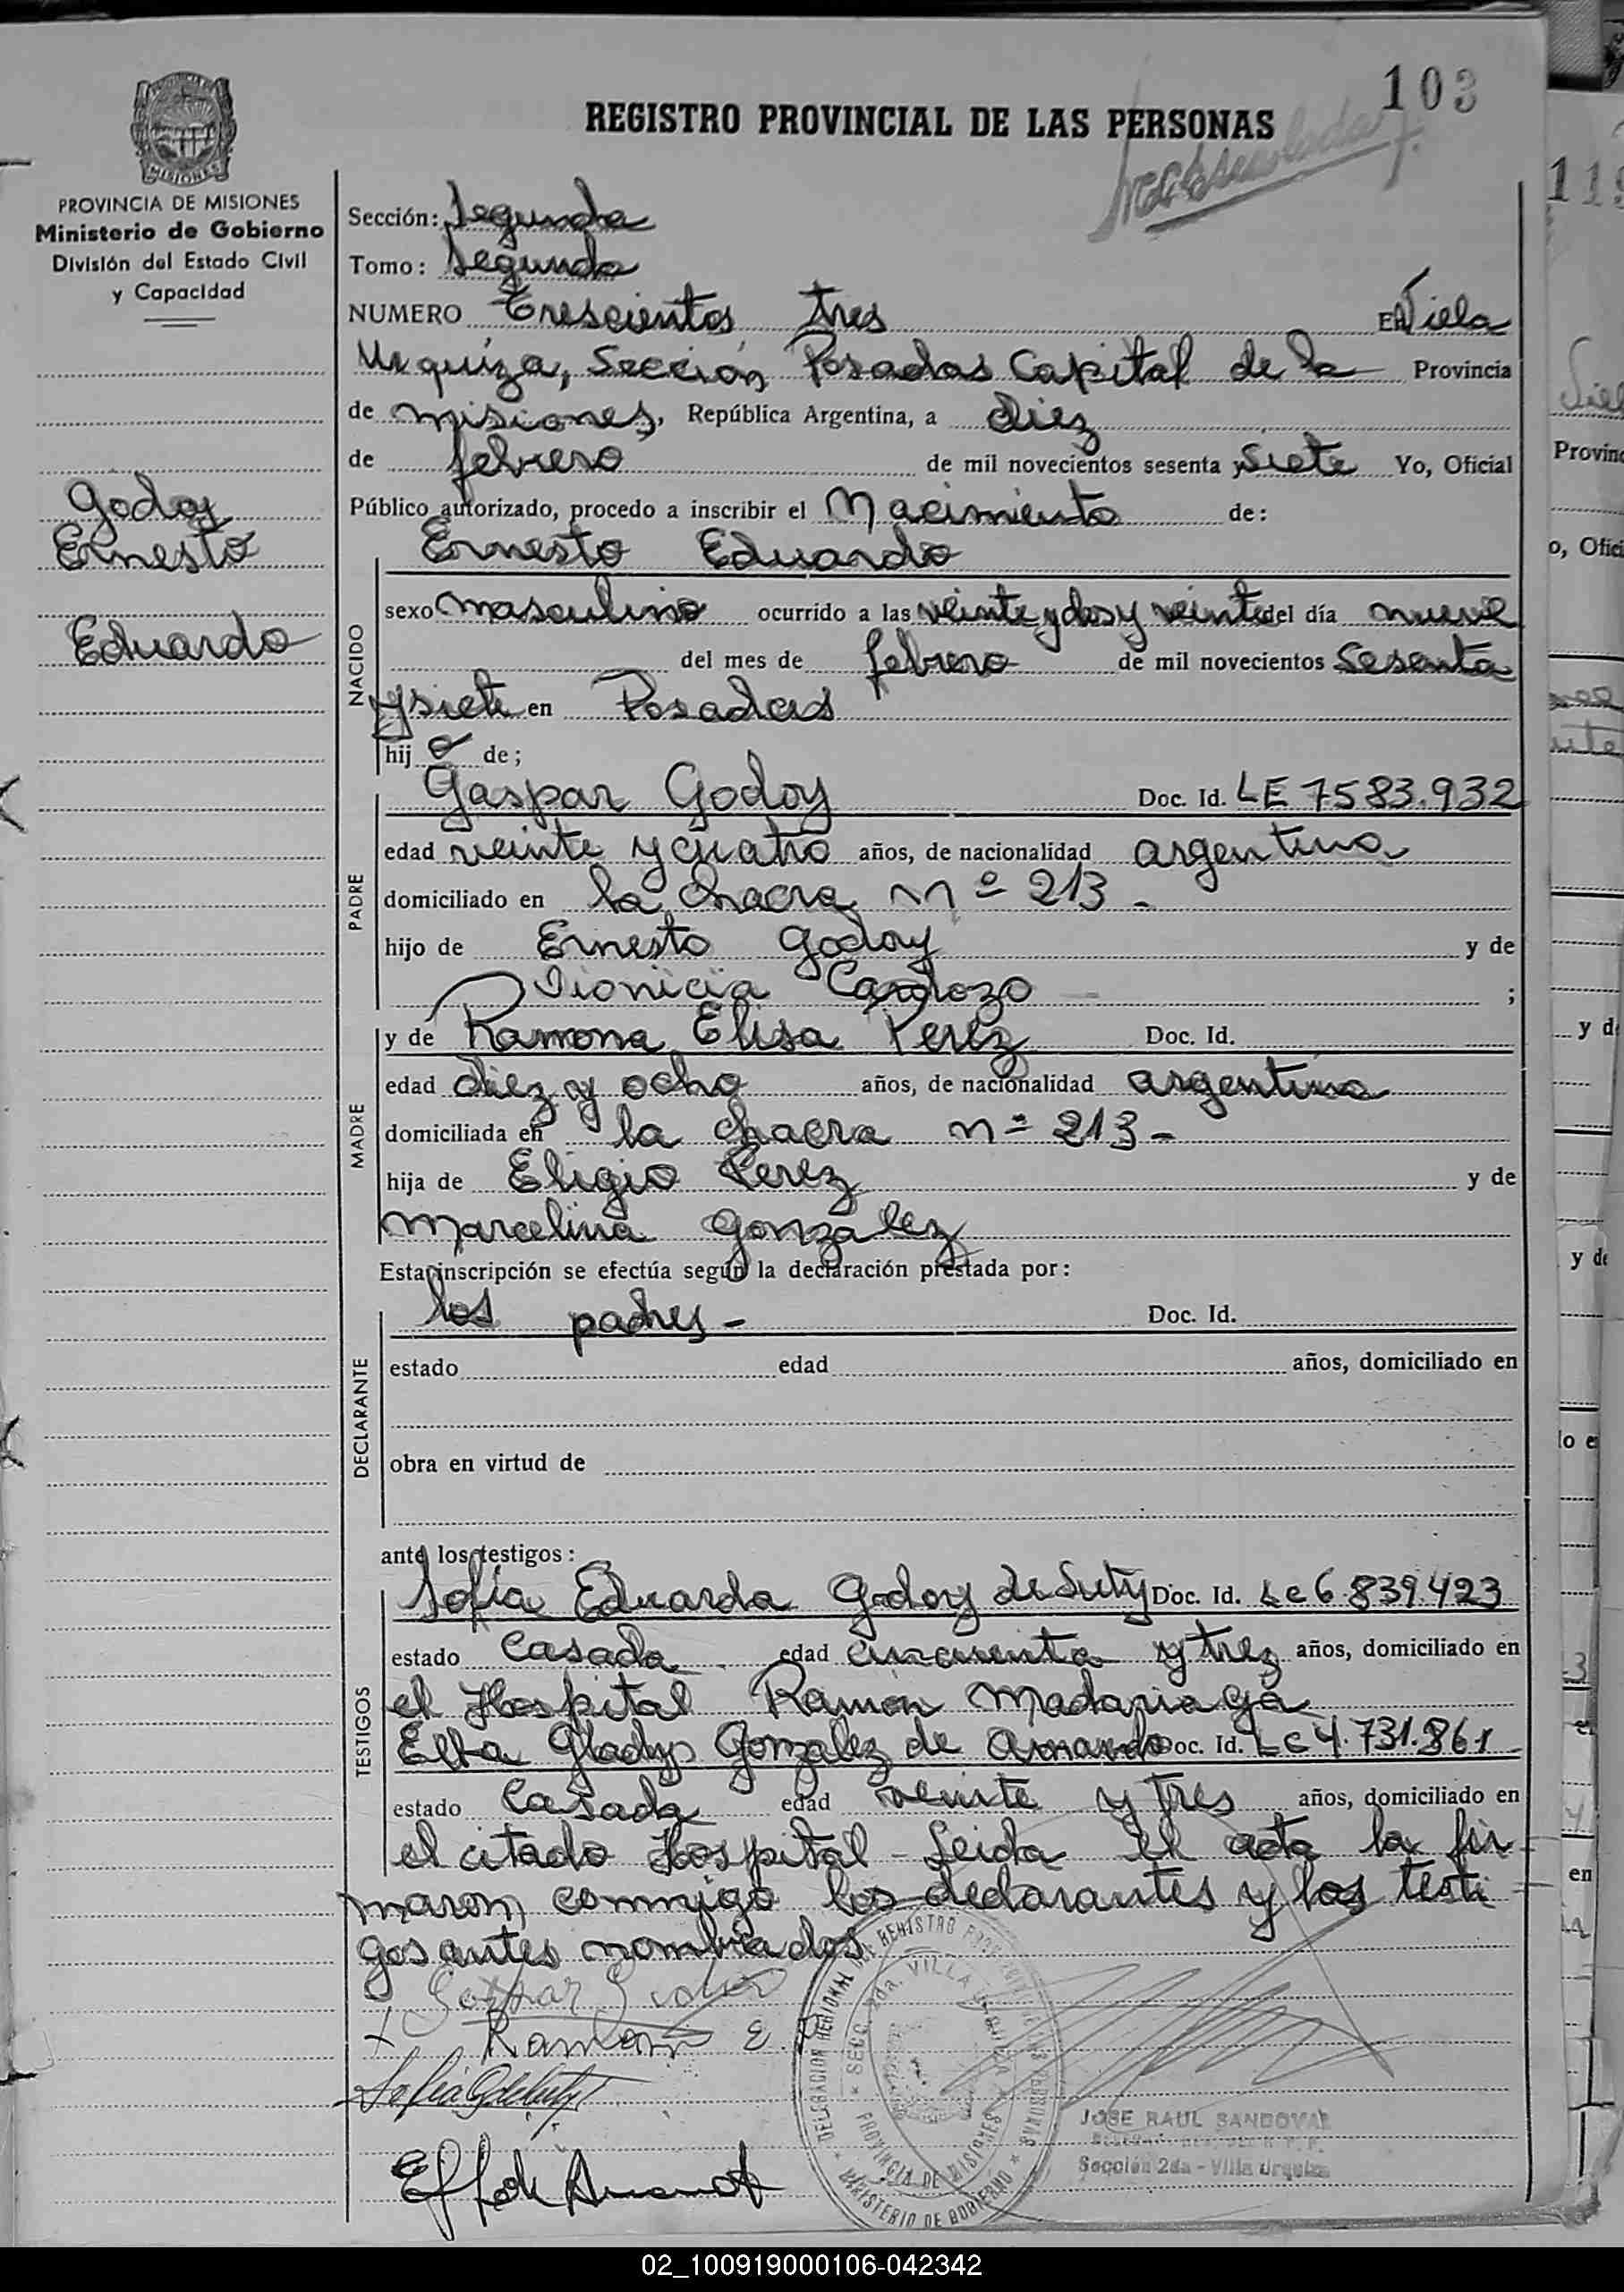 103
REGISTRO PROVINCIAL DE LAS PERSONAS
MISIONES
PROVINCIA DE MISIONES
Ministerio de Gobierno
División del Estado Civil
y Capacidad
Godoy
Ernesto
Eduardo
Sección: Segunda
Tomo: Segundo
NUMERO Trescientos tres EN Viela
Urquiza, Sección Posadas Capital de la Provincia
de misiones, República Argentina, a diez
de febrero de mil novecientos sesenta y siete Yo, Oficial
Público autorizado, procedo a inscribir el Nacimiento de:
Ernesto Eduardo
NACIDO
sexo masculino ocurrido a las veinte y dos y veinte del día nueve
del mes de febrero de mil novecientos Sesenta
y siete en Posadas
hijo de;
PADRE
Gaspar Godoy Doc. Id. LE 7583.932
edad veinte y cuatro años, de nacionalidad argentina
domiciliado en la chacra nº 213 -
hijo de Ernesto Godoy y de
Dionicia Cardozo ;
MADRE
y de Ramona Elisa Perez Doc. Id.
edad diez y ocho años, de nacionalidad argentina
domiciliada en la chacra nº 213 -
hija de Eligio Perez y de
Marcelina Gonzalez
Esta inscripción se efectúa según la declaración prestada por:
DECLARANTE
los padres - Doc. Id.
estado edad años, domiciliado en
obra en virtud de
ante los testigos:
TESTIGOS
Sofia Eduarda Godoy de Suty Doc. Id. Lc 6.839.423
estado Casada edad cincuenta y trez años, domiciliado en
el Hospital Ramon Madariaga
Elba Gladys Gonzalez de Amando Doc. Id. Lc 4.731.861
estado Casada edad veinte y tres años, domiciliado en
el citado Hospital - Leida el acta la fir
maron conmigo los declarantes y los testi
gos antes nombrados.
Gaspar Godoy
Ramona E. P
DELEGACION REGIONAL DE REGISTRO PROVINCIAL DE LAS PERSONAS
SECC. 2da. VILLA URQUIZA
PROVINCIA DE MISIONES
MINISTERIO DE GOBIERNO
JOSE RAUL SANDOVAL
Sección 2da - Villa Urquiza
02_100919000106-042342